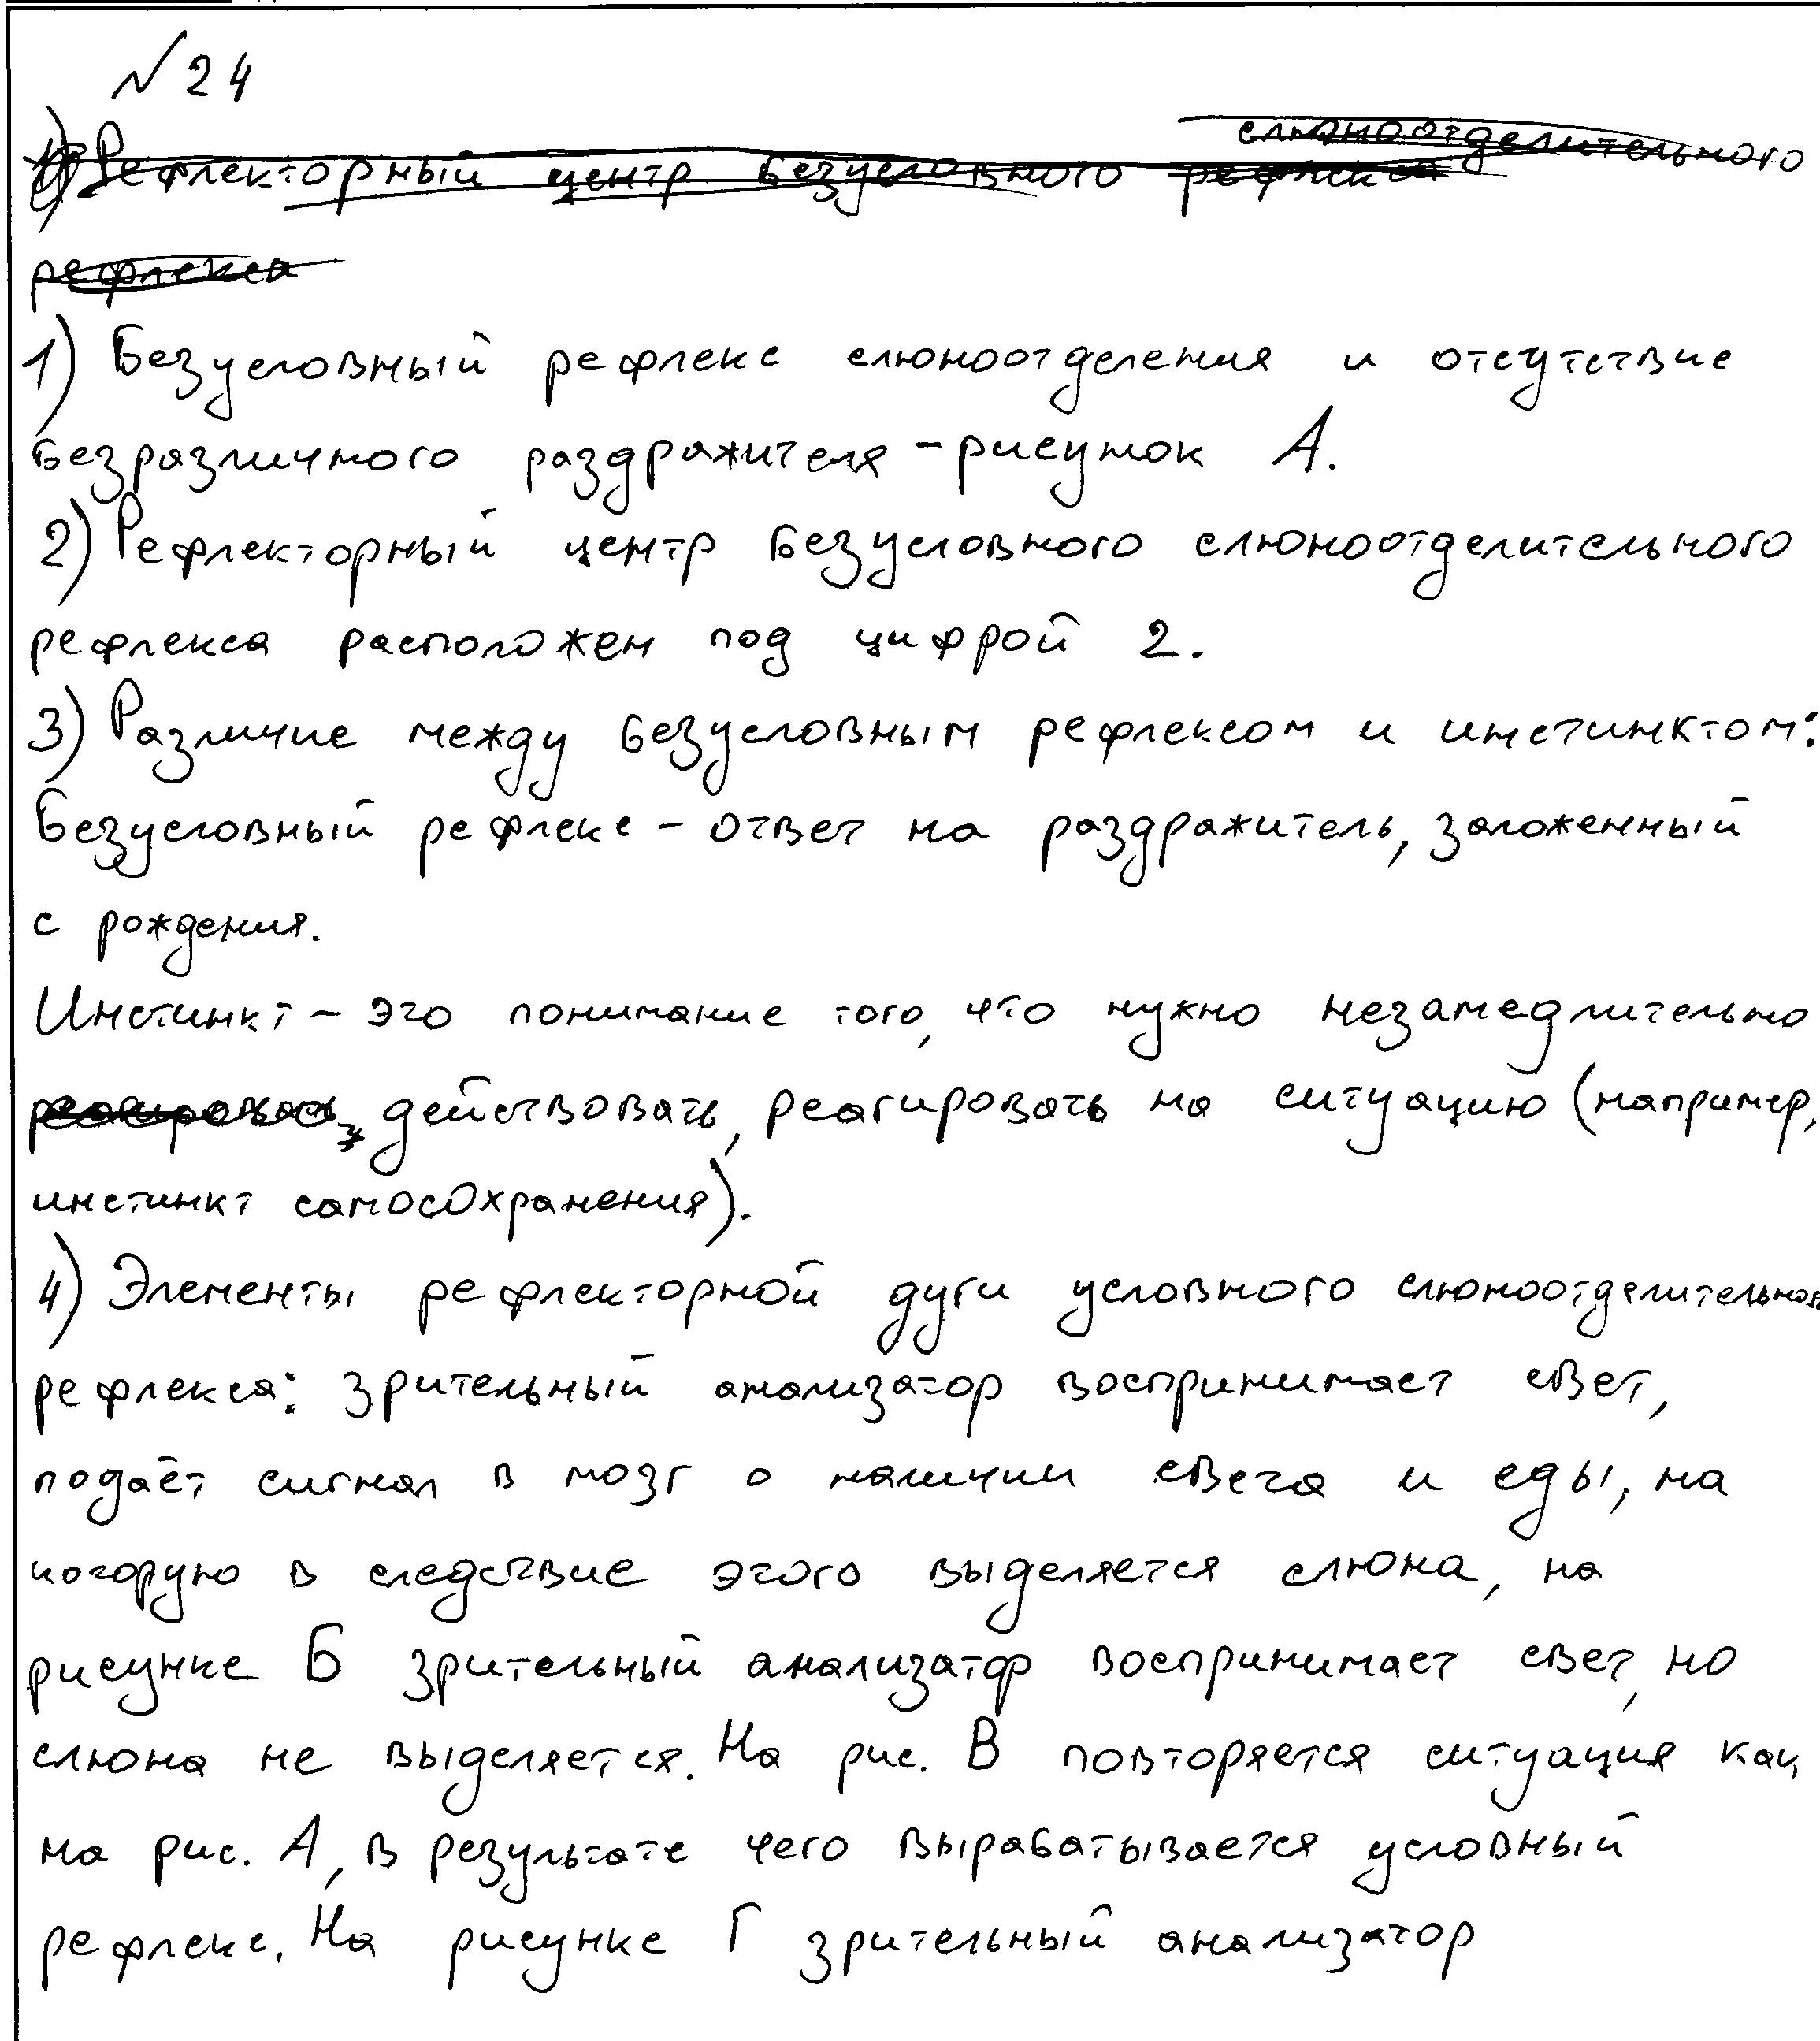 №24
1) Рефлекторный центр безусловного рефлекса слюноотделительного
рефлекса
1) Безусловный рефлекс слюноотделения и отсутствие
безразличного раздражителя - рисунок А.
2) Рефлекторный центр безусловного слюноотделительного
рефлекса расположен под цифрой 2.
3) Различие между безусловным рефлексом и инстинктом:
Безусловный рефлекс - ответ на раздражитель, заложенный
с рождения.
Инстинкт - это понимание того, что нужно незамедлительно
реагировать, действовать, реагировать на ситуацию (например,
инстинкт самосохранения).
4) Элементы рефлекторной дуги условного слюноотделительного
рефлекса: зрительный анализатор воспринимает свет,
подаёт сигнал в мозг о наличии света и еды, на
которую в следствие этого выделяется слюна, на
рисунке Б зрительный анализатор воспринимает свет, но
слюна не выделяется. На рис. В повторяется ситуация как
на рис. А, в результате чего вырабатывается условный
рефлекс. На рисунке Г зрительный анализатор